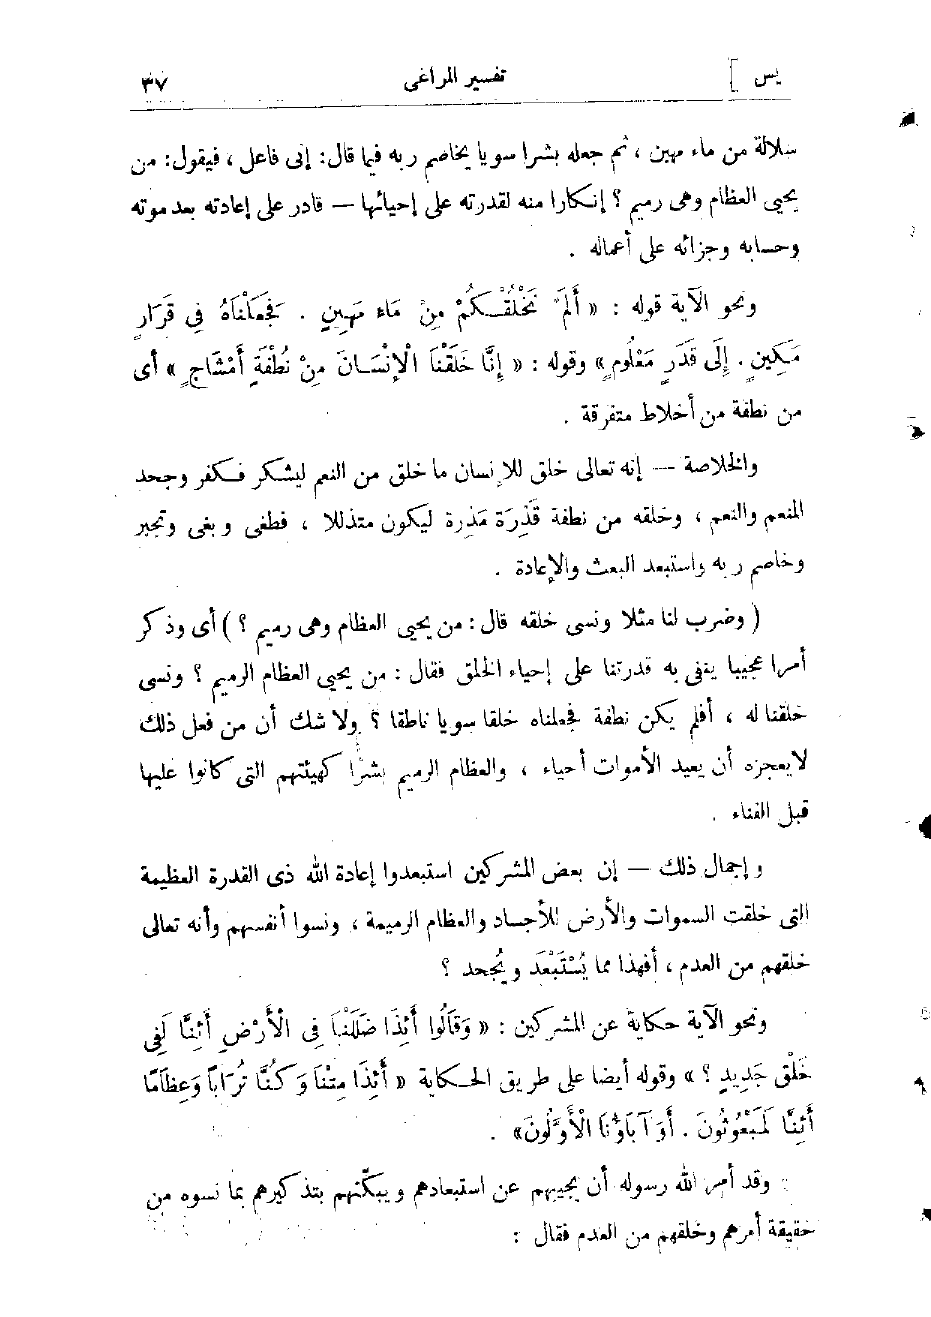 يس ] تفسير المراغى ٣٧
سلالة من ماء مهين ، ثم جعله بشرا سويا يخاصم ربه فيما قال : إنى فاعل ، فيقول : من
يحيى العظام وهى رميم ؟ إنكارا منه لقدرته على إحيائها — قادر على إعادته بعد موته
وحسابه وجزائه على أعماله .
ونحو الآية قوله : « أَلَمْ نَخْلُقْكُمْ مِنْ مَاء مَهِينٍ . فَجَعَلْنَاهُ فِي قَرَارٍ
مَكِينٍ . إِلَى قَدَرٍ مَعْلُومٍ » وقوله : « إِنَّا خَلَقْنَا الْإِنْسَانَ مِنْ نُطْفَةٍ أَمْشَاجٍ » أى
من نطفة من أخلاط متفرقة .
والخلاصة — إنه تعالى خلق للإنسان ما خلق من النعم ليشكر فكفر وجحد
المنعم والنعم ، وخلقه من نطفة قَذِرَة مَذِرة ليكون متذللا ، فطغى وبغى وتجبر
وخاصم ربه واستبعد البعث والإعادة .
( وضرب لنا مثلا ونسى خلقه قال : من يحيى العظام وهى رميم ؟ ) أى وذكر
أمرا عجيبا ينفى به قدرتنا على إحياء الخلق فقال : من يحيى العظام الرميم ؟ ونسى
خلقنا له ، أفلم يكن نطفة فجعلناه خلقا سويا ناطقا ؟ ولا شك أن من فعل ذلك
لا يعجزه أن يعيد الأموات أحياء ، والعظام الرميم بشرًا كهيئتهم التى كانوا عليها
قبل الفناء .
وإجمال ذلك — إن بعض المشركين استبعدوا إعادة الله ذى القدرة العظيمة
التى خلقت السموات والأرض للأجساد والعظام الرميمة ، ونسوا أنفسهم وأنه تعالى
خلقهم من العدم ، أفهذا مما يُسْتَبْعَد ويُجحد ؟
ونحو الآية حكاية عن المشركين : « وَقَالُوا أَئِذَا ضَلَلْنَا فِي الْأَرْضِ أَئِنَّا لَفِي
خَلْقٍ جَدِيدٍ ؟ » وقوله أيضا على طريق الحكاية « أَئِذَا مِتْنَا وَكُنَّا تُرَابًا وَعِظَامًا
أَئِنَّا لَمَبْعُوثُونَ . أَوَ آبَاؤُنَا الْأَوَّلُونَ » .
وقد أمر الله رسوله أن يجيبهم عن استبعادهم ويبكّتهم بتذكيرهم بما نسوه من
حقيقة أمرهم وخلقهم من العدم فقال :